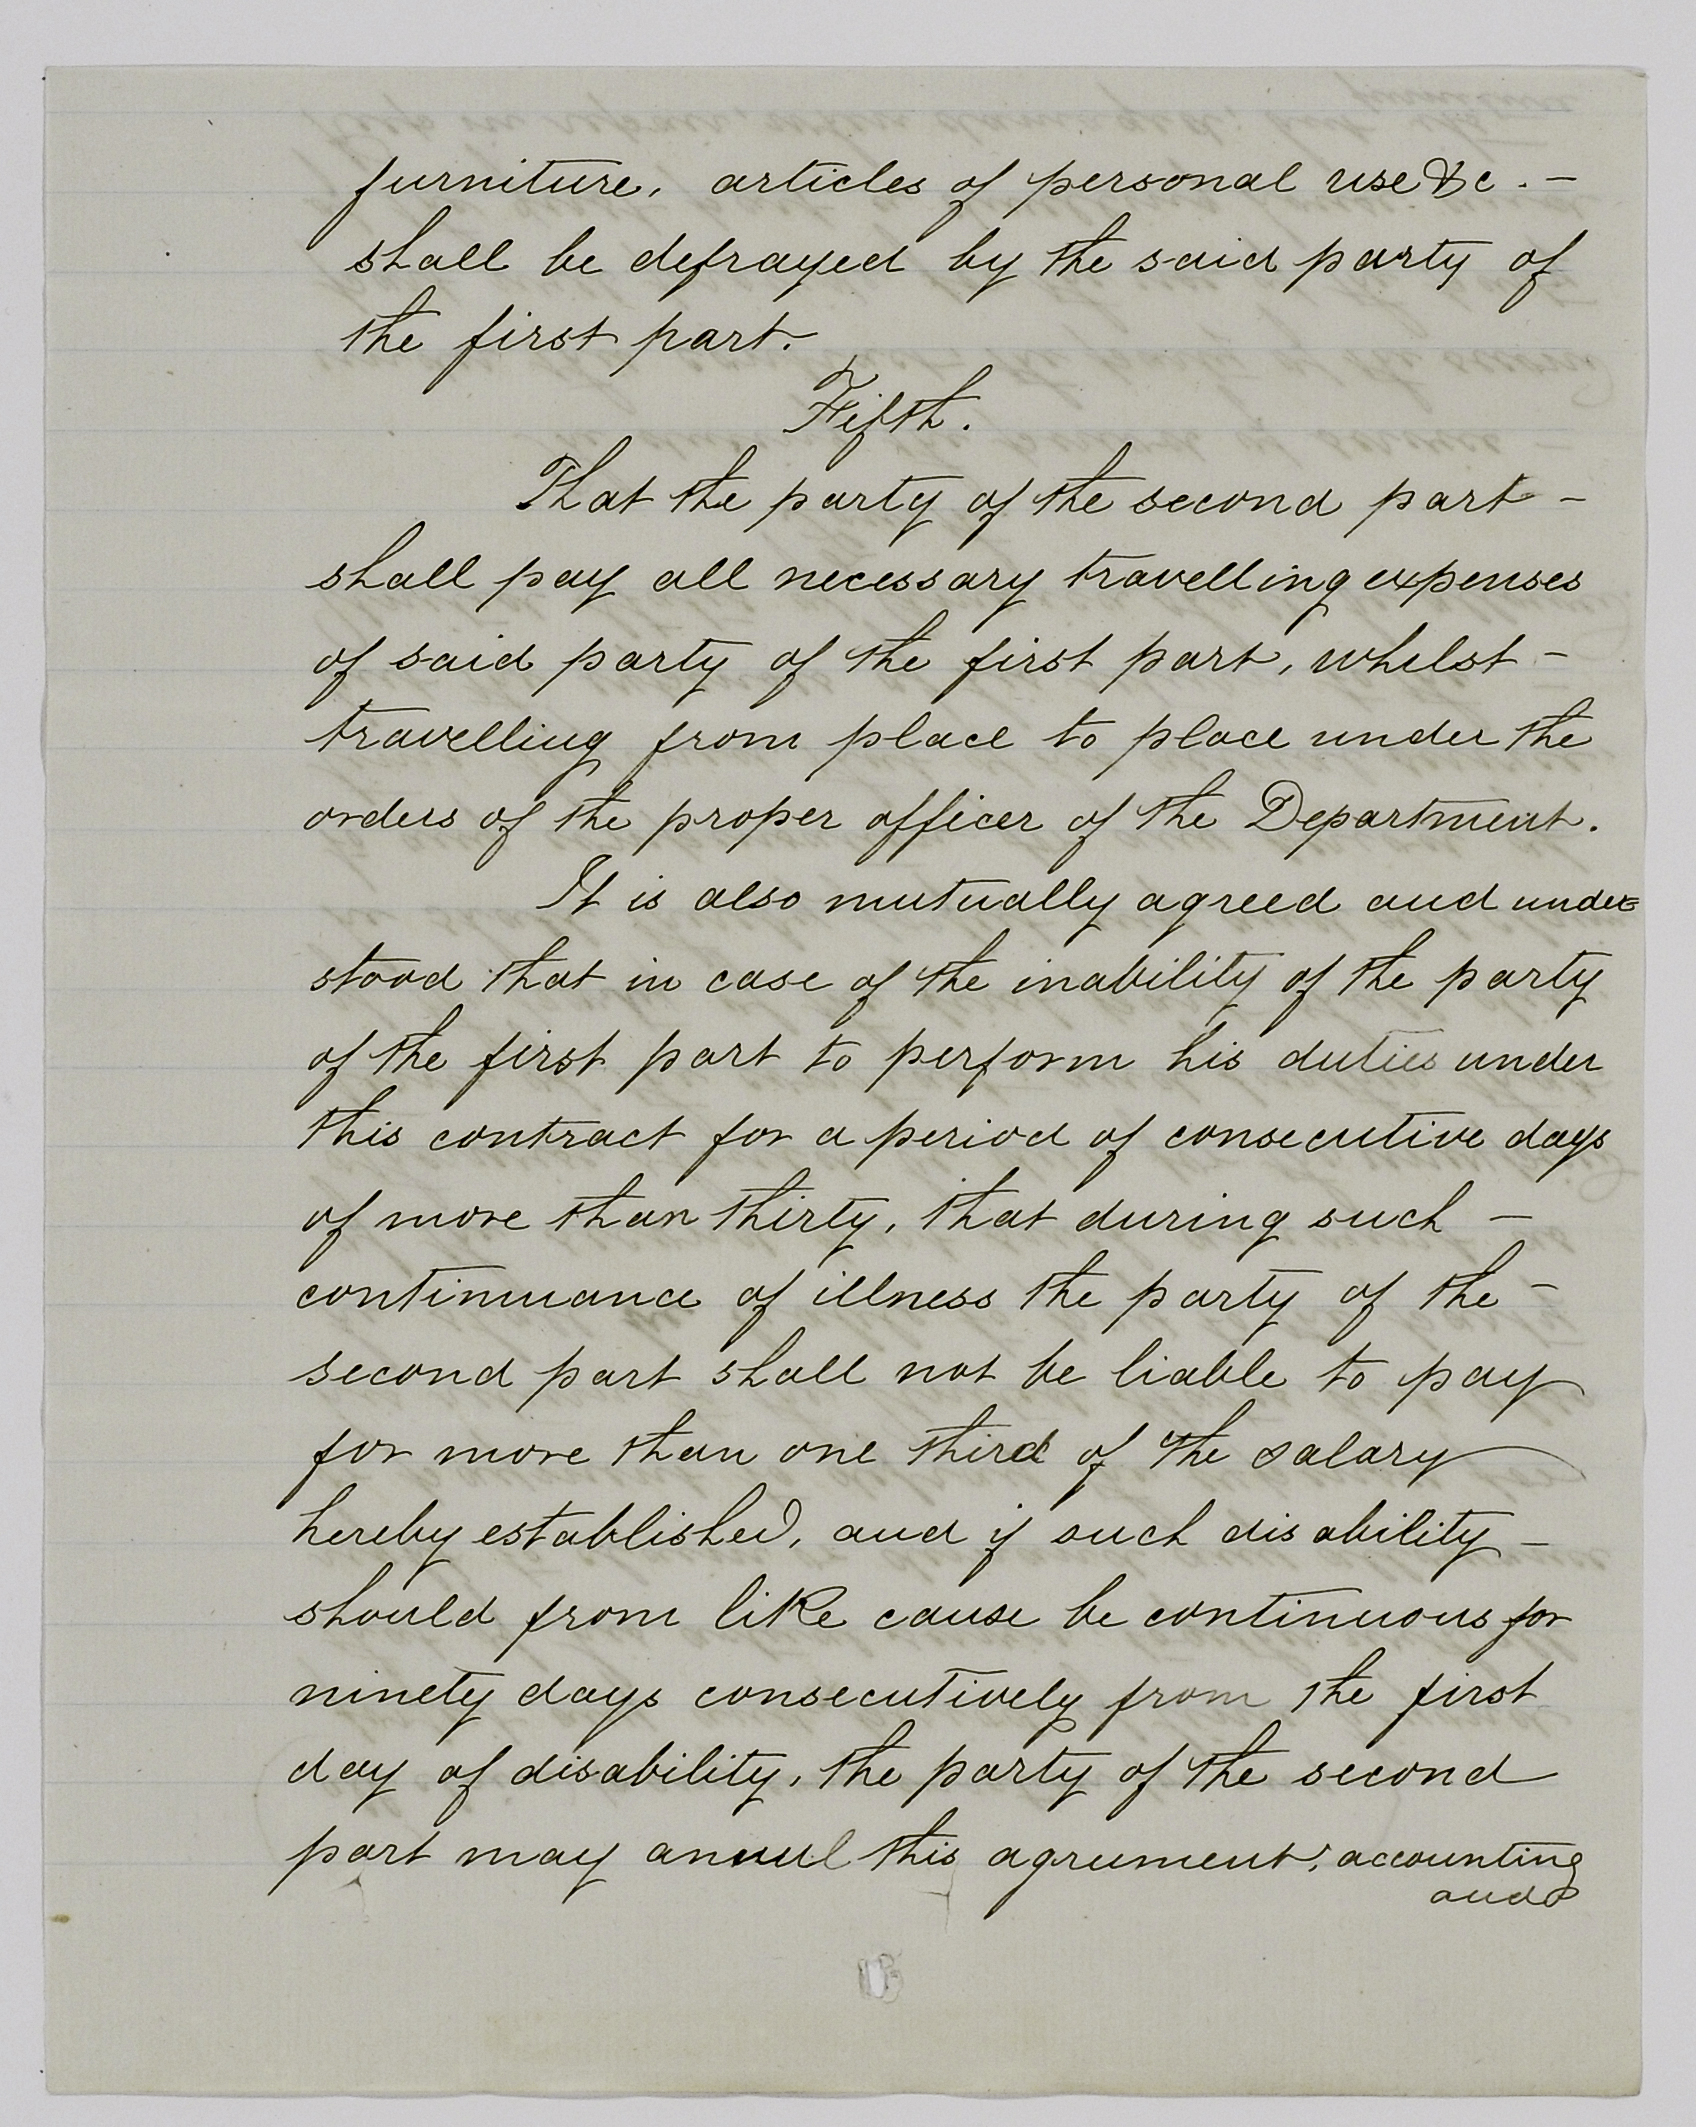 furniture, articles of personal use &c. –
shall be defrayed by the said party of
the first part.
Fifth.
That the party of the second part –
shall pay all necessary travelling expenses
of said party of the first part, whilst –
travelling from place to place under the
orders of the proper officer of the Department.
It is also mutually agreed and under=
stood that in case of the inability of the party
of the first part to perform his duties under
this contract for a period of consecutive days
of more than thirty, that during such –
continuance of illness the party of the –
second part shall not be liable to pay
for more than one third of the salary
hereby established, and if such disability –
should from like cause be continuous for
ninety days consecutively from the first
day of disability, the party of the second
part may annul this agreement, accounting
and